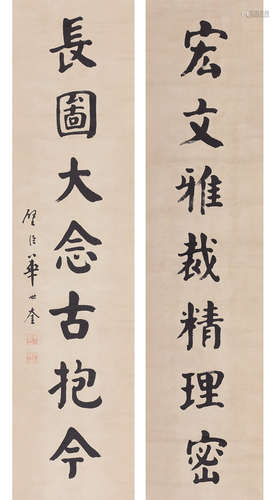 宏文雅裁精理密
長圖大念古抱今
璧臣華世奎